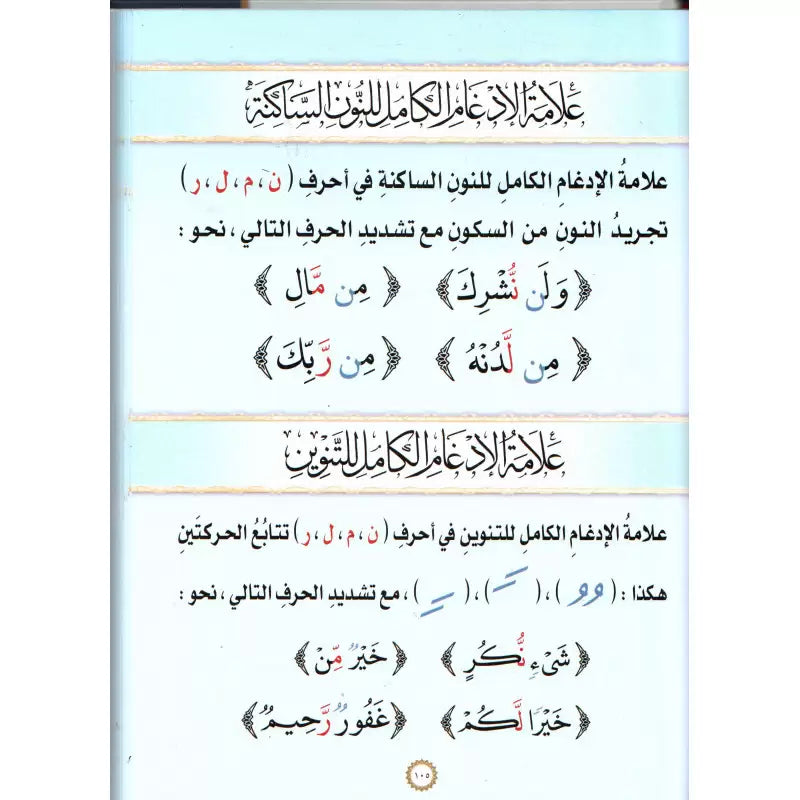 عَلَامَةُ الإِدْغَامِ الكَامِلِ لِلنُّونِ السَّاكِنَةِ
علامةُ الإدغامِ الكاملِ للنونِ الساكنةِ في أحرفِ (ن، م، ل، ر)
تجريدُ النونِ من السكونِ مع تشديدِ الحرفِ التالي، نحو:
﴿وَلَن نُّشْرِكَ﴾ ﴿مِن مَّالِ﴾
﴿مِن لَّدُنْهُ﴾ ﴿مِن رَّبِّكَ﴾
عَلَامَةُ الإِدْغَامِ الكَامِلِ لِلتَّنْوِينِ
علامةُ الإدغامِ الكاملِ للتنوينِ في أحرفِ (ن، م، ل، ر) تتابُعُ الحركتَينِ
هكذا: (ـٌ)، (ـً)، (ـٍ)، مع تشديدِ الحرفِ التالي، نحو:
﴿شَىْءٍ نُّكُرٍ﴾ ﴿خَيْرٌ مِّنْ﴾
﴿خَيْرًا لَّكُمْ﴾ ﴿غَفُورٌ رَّحِيمٌ﴾
١٠٥